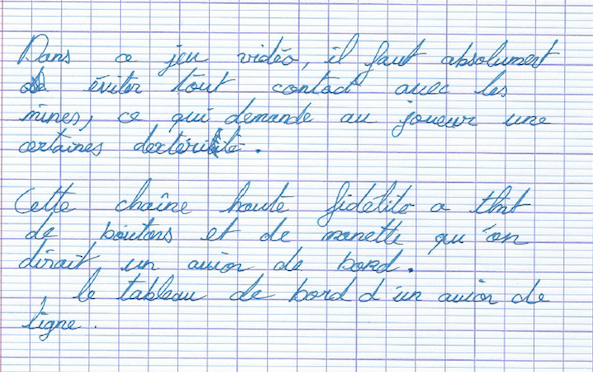 Dans ce jeu vidéo, il faut absolument
éviter tout contact avec les
mines, ce qui demande au joueur une
certaines dextérité.
Cette chaîne haute fidélité a tant
de boutons et de manette qu'on
dirait un avion de bord.
le tableau de bord d'un avion de
ligne.